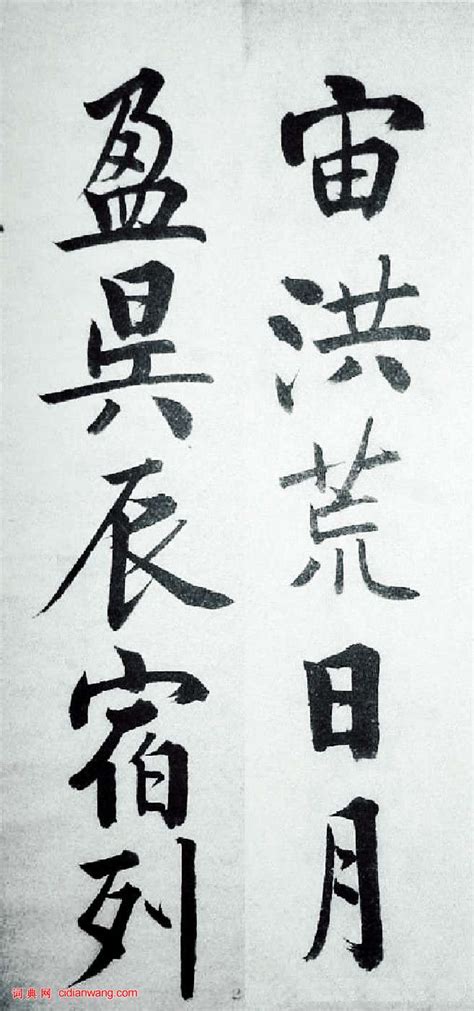 宙洪荒日月
盈昃辰宿列
词典网 cidianwang.com